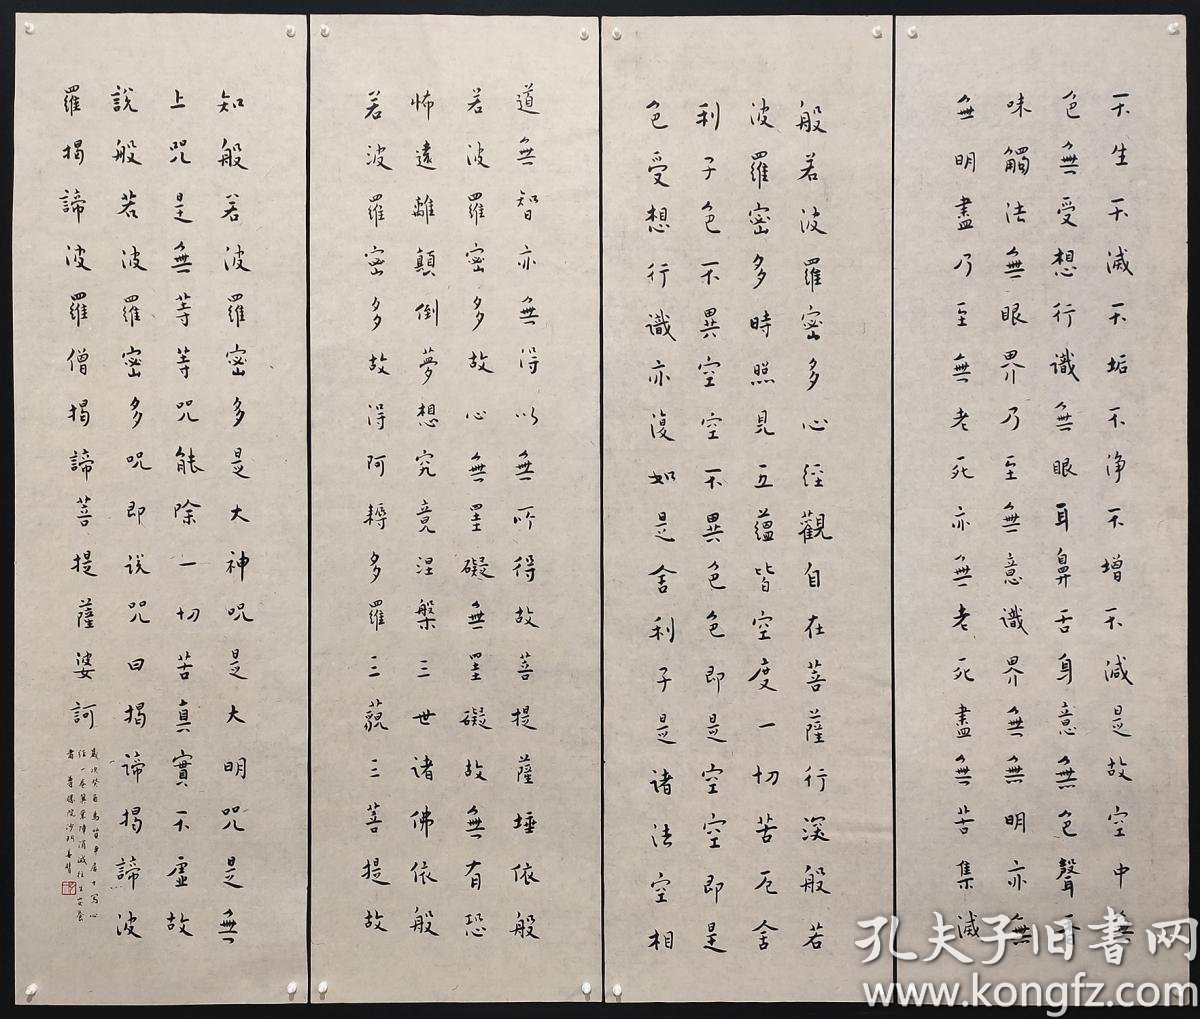 不生不滅不垢不净不增不減是故空中無
色無受想行識無眼耳鼻舌身意無色聲香
味觸法無眼界乃至無意識界無無明亦無
無明盡乃至無老死亦無老死盡無苦集滅
般若波羅密多心經觀自在菩薩行深般若
波羅密多時照見五蘊皆空度一切苦厄舍
利子色不異空空不異色色即是空空即是
色受想行識亦復如是舍利子是諸法空相
道無智亦無得以無所得故菩提薩埵依般
若波羅密多故心無罣礙無罣礙故無有恐
怖遠離顛倒夢想究竟涅槃三世諸佛依般
若波羅密多故得阿耨多羅三藐三菩提故
知般若波羅密多是大神咒是大明咒是無
上咒是無等等咒能除一切苦真實不虛故
說般若波羅密多咒即说咒曰揭諦揭諦波
羅揭諦波羅僧揭諦菩提薩婆訶
歲次癸酉為居士写心
经一卷冀業障消滅往生安養
院沙門
孔夫子旧書网
www.kongfz.com